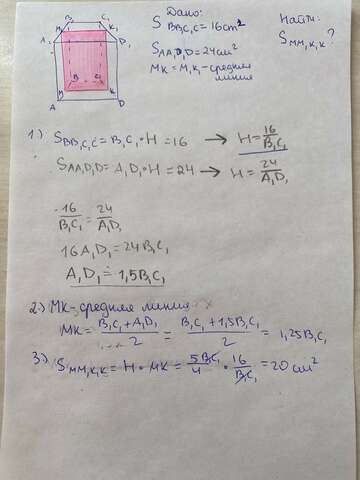 Дано:
S BB₁C₁C = 16 cm²
S AA₁D₁D = 24 см²
MK = M₁K₁ - средняя
линия
Найти:
S MM₁K₁K ?
B₁ C₁
M₁ K₁
A₁ D₁
B C
M K
A D
1.) S BB₁C₁C = B₁C₁ · H = 16 → H = 16/B₁C₁
S AA₁D₁D = A₁D₁ · H = 24 → H = 24/A₁D₁
16/B₁C₁ = 24/A₁D₁
16A₁D₁ = 24B₁C₁
A₁D₁ = 1,5B₁C₁
2.) MK - средняя линия
MK = (B₁C₁ + A₁D₁)/2 = (B₁C₁ + 1,5B₁C₁)/2 = 1,25B₁C₁
3.) S MM₁K₁K = H · MK = 5B₁C₁/4 · 16/B₁C₁ = 20 см²